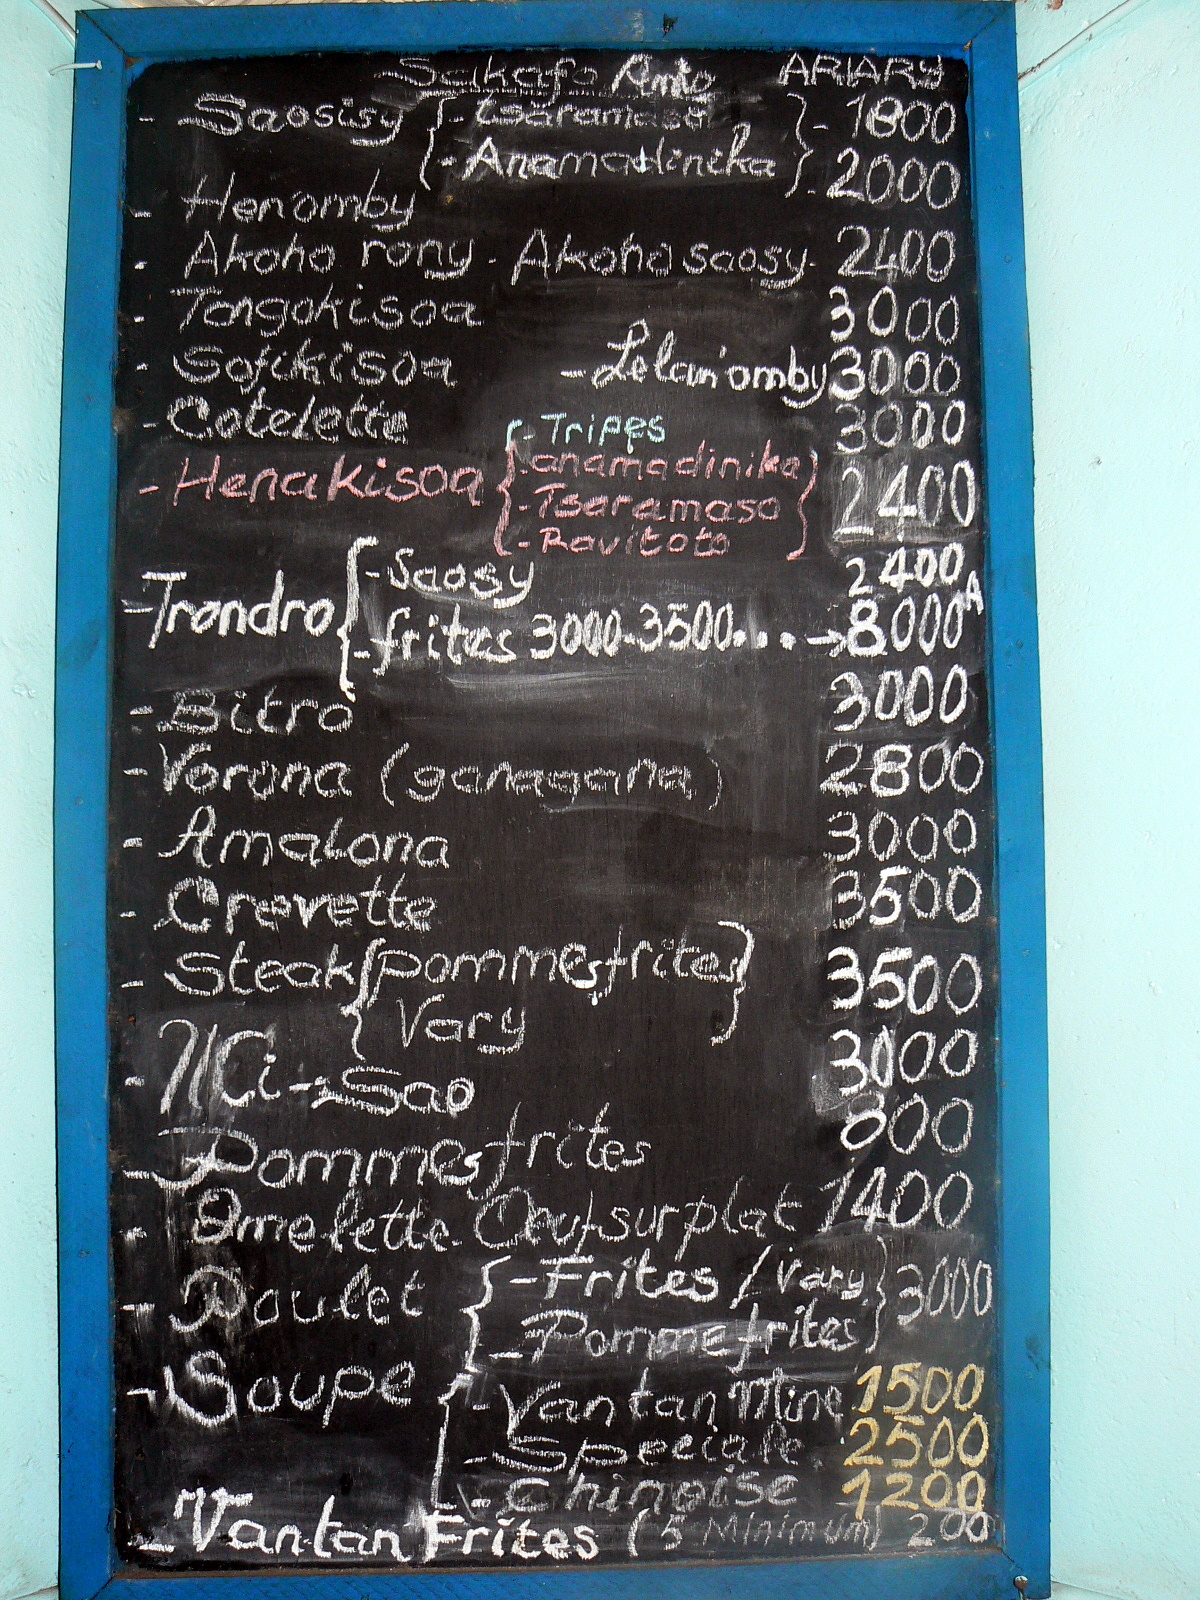 Sakafo ARIARY
- Saosisy { - Tsaramaso } - 1800
{ - Anamadinika } - 2000
- Henomby
- Akoho rony - Akoho saosy - 2400
- Tongokisoa 3000
- Sofikisoa - Lelan'omby 3000
- Cotelette 3000
- Tripes
- Henakisoa { - anamadinika } 2400
- Tsaramaso
- Ravitoto
- Trondro { - Saosy 2400
- frites 3000-3500...→8000A
- Bitro 3000
- Vorona (ganagana) 2800
- Amalona 3000
- Crevette 3500
- Steak { pommes frites } 3500
{ Vary }
- Mi-Sao 3000
- Pommes frites 800
- Omelette - Oeuf sur plat 1400
- Poulet { - Frites / Vary } 3000
- Pomme frites
- Soupe { - Van tan Mine 1500
- Speciale 2500
- Chinoise 1200
- Van tan Frites (5 Minimum) 200